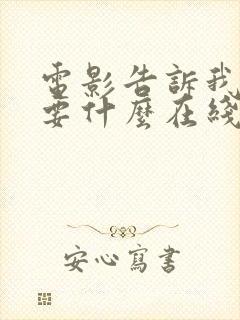 電影告訴我
要什麼在綫
安心寫書